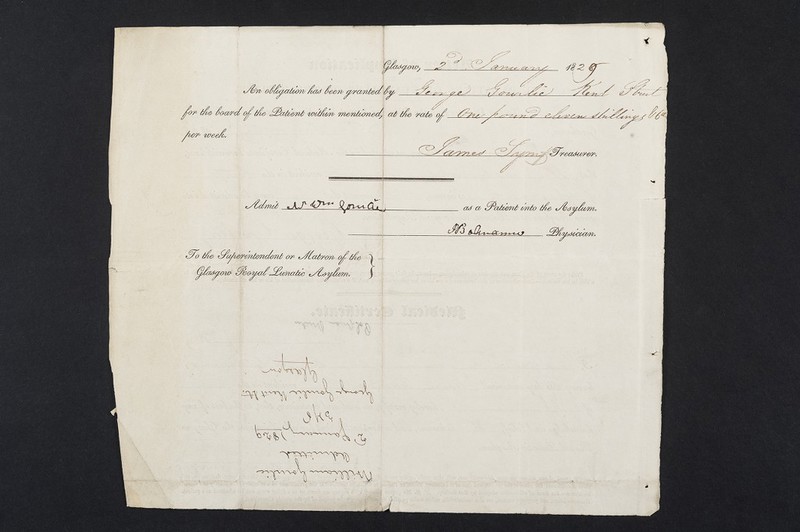 Glasgow, 2d January 1829
An obligation has been granted by George Gourlie Kent Street
for the board of the Patient within mentioned, at the rate of One pound eleven shillings & 6d
per week.
James Treasurer.
Admit Mr Wm Gourlie as a Patient into the Asylum.
Physician.
To the Superintendent or Matron of the
Glasgow Royal Lunatic Asylum.
William Gourlie
Admitted
2 January 1829
George Gourlie Kent St
Glasgow
Medical Certificate.